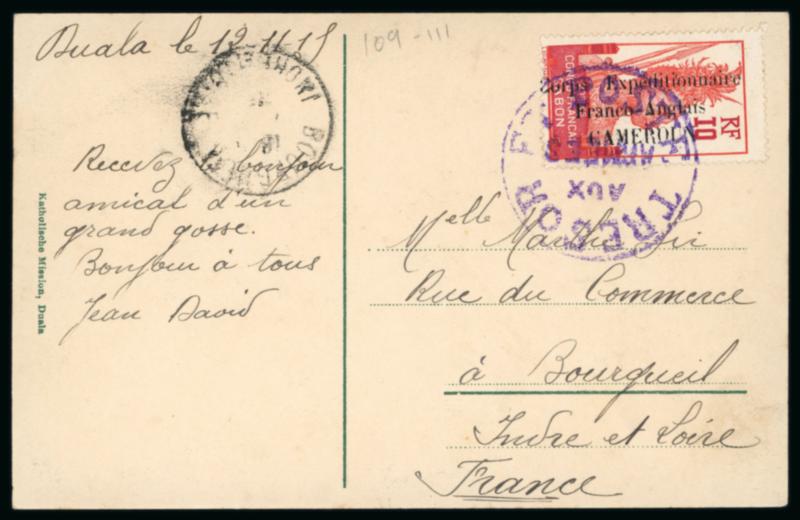 Duala le 12.11.15
109-111
Corps Expéditionnaire
Franco-Anglais
CAMEROUN
CONGO FRANÇAIS
GABON
10
RF
TRESOR ET POSTES
AUX
ARMEES
BOURGUEIL
INDRE-ET-LOIRE
Recevez bonjour
amical d'un
grand gosse.
Bonjour à tous
Jean David
Katholische Mission, Duala
Melle Marthe
Rue du Commerce
à Bourgueil
Indre et Loire
France